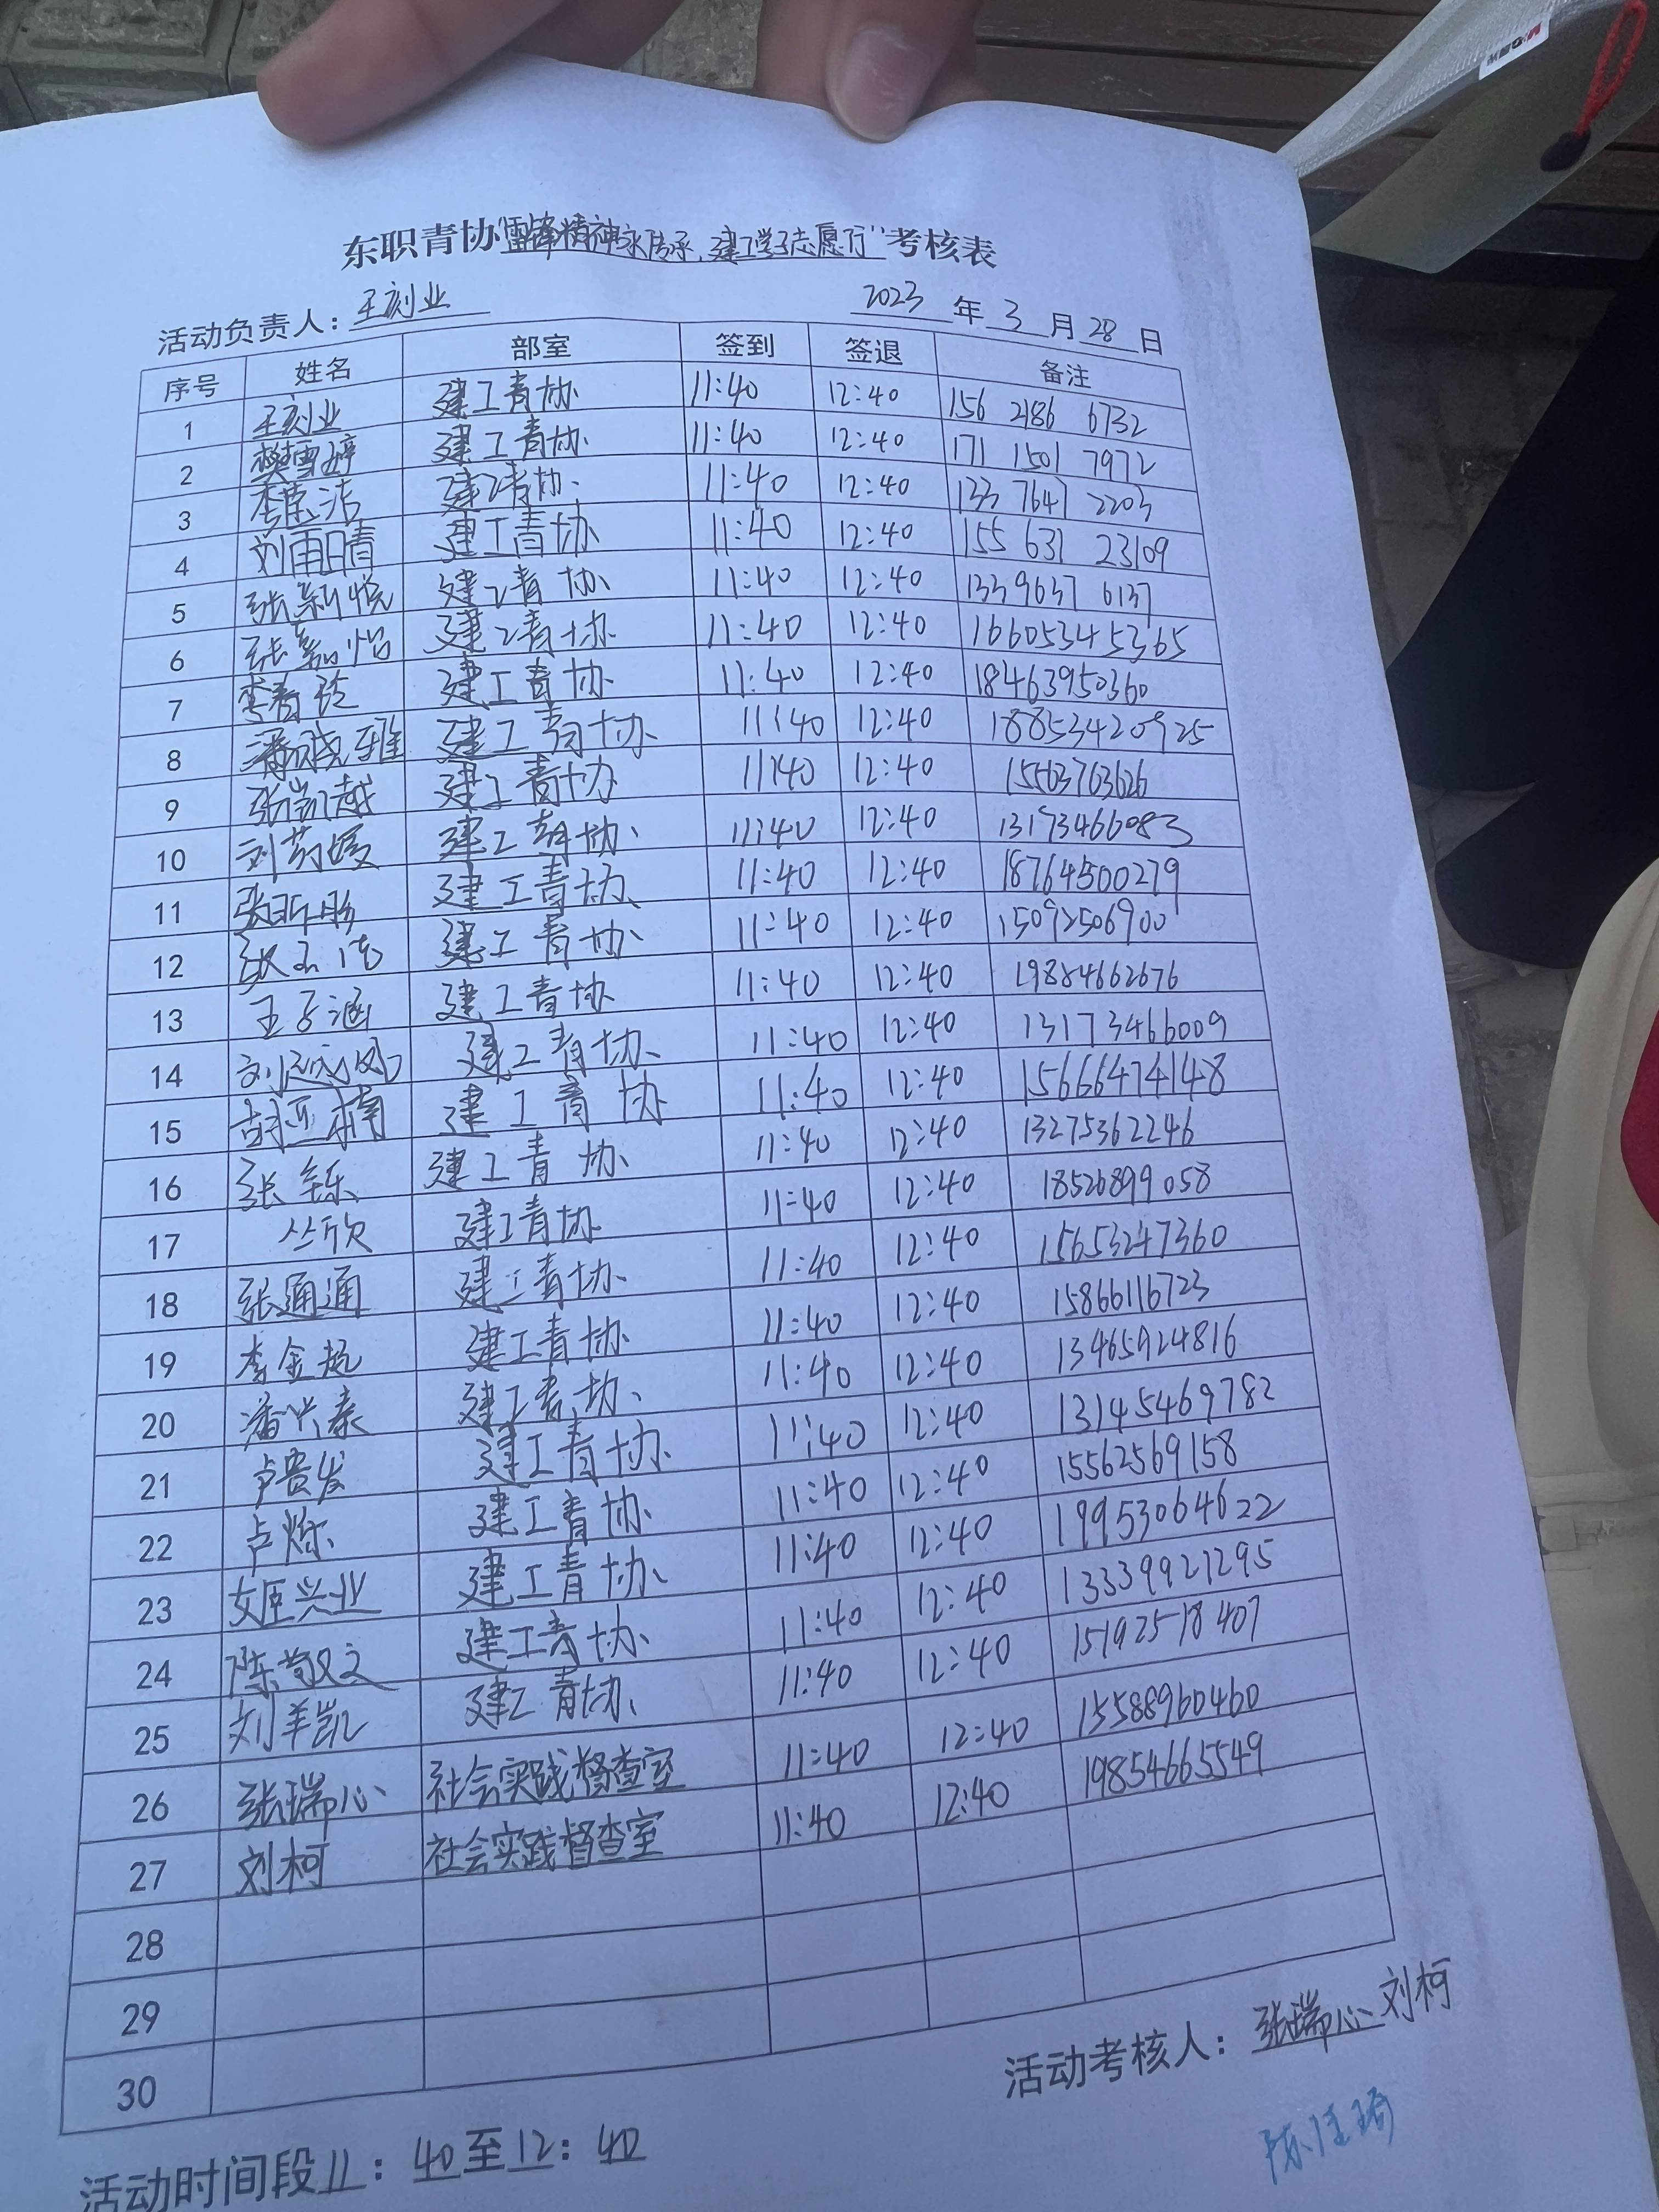 东职青协“雷锋精神永传承,建工学子志愿行”考核表
活动负责人：王刻业 2023 年 3 月 28 日
序号 姓名 部室 签到 签退 备注
1 王刻业 建工青协 11:40 12:40 156 2186 6732
2 樊雪婷 建工青协 11:40 12:40 171 1501 7972
3 建工青协 11:40 12:40 133 7647 2203
4 刘雨晴 建工青协 11:40 12:40 155 631 23109
5 张新悦 建工青协 11:40 12:40 1339637 6137
6 建工青协 11:40 12:40 166053445365
7 建工青协 11:40 12:40 18463950360
8 潘晓雅 建工青协 11:40 12:40 18853420925
9 张凯越 建工青协 11:40 12:40 15563763626
10 建工青协 11:40 12:40 13173466083
11 建工青协 11:40 12:40 18764500279
12 建工青协 11:40 12:40 15092506900
13 王子涵 建工青协 11:40 12:40 19884662676
14 建工青协 11:40 12:40 13173466009
15 胡亚楠 建工青协 11:40 12:40 15666474148
16 张 建工青协 11:40 12:40 13275362246
17 丛欣 建工青协 11:40 12:40 18526899058
18 张通通 建工青协 11:40 12:40 15653247360
19 李金 建工青协 11:40 12:40 15866116723
20 潘兴泰 建工青协 11:40 12:40 13465924816
21 卢贵发 建工青协 11:40 12:40 13145469782
22 卢烁 建工青协 11:40 12:40 15562569158
23 姬兴业 建工青协 11:40 12:40 19953064622
24 陈敬文 建工青协 11:40 12:40 13339921295
25 刘羊凯 建工青协 11:40 12:40 15192518407
26 张瑞心 社会实践督查室 11:40 12:40 15588960460
27 刘柯 社会实践督查室 11:40 12:40 19854665549
28
29
30
活动考核人：张瑞心 刘柯
陈佳琦
活动时间段11：40至12：40